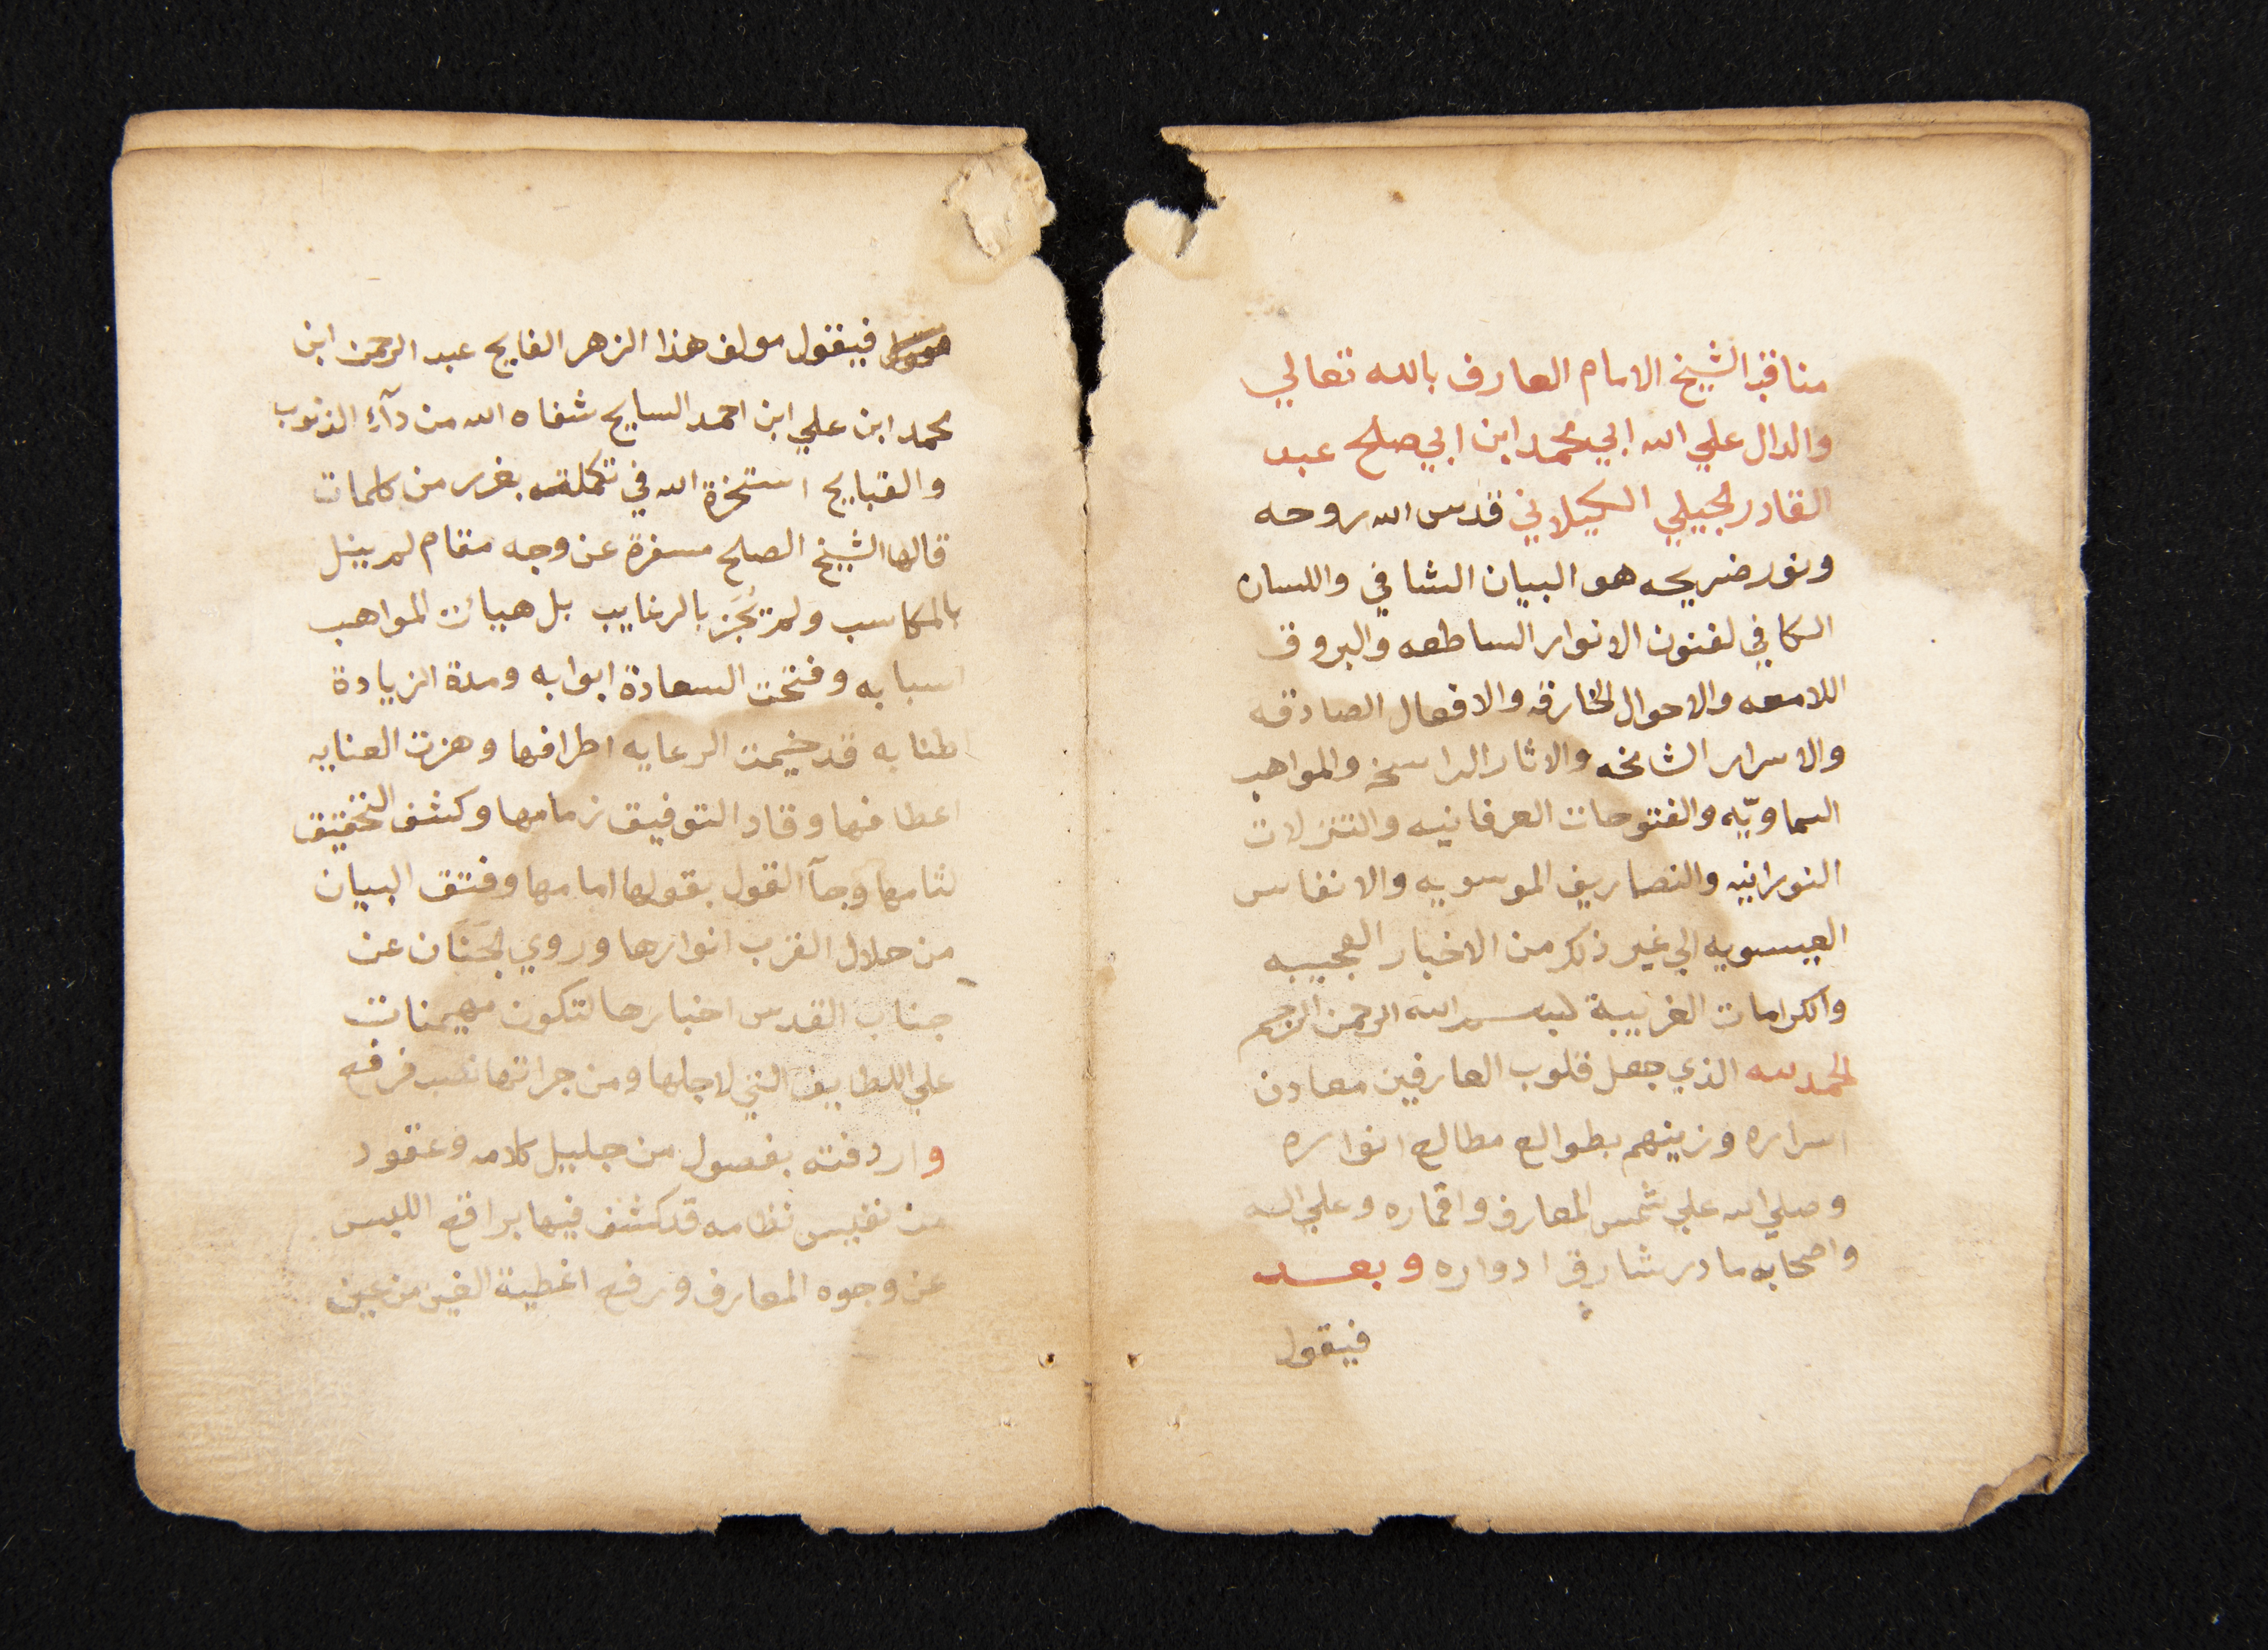 مناقب الشيخ الامام العارف بالله تعالي
والدال علي الله ابي محمد ابن ابي صلح عبد
القادر الجيلي الكيلاني قدس الله روحه
ونور ضريحه هو البيان الشافي واللسان
الكافي لفنون الانوار الساطعه والبروق
اللامعه والاحوال الخارقه والافعال الصادقه
والاسرار الشامخه والاثار الراسخه والمواهب
السماويّه والفتوحات العرفانيه والتنزلات
النورانيه والتصاريف الموسويه والانفاس
العيسويه الي غير ذلك من الاخبار العجيبه
والكرامات الغريبة بسم الله الرحمن الرحيم
الحمد لله الذي جعل قلوب العارفين معادن
اسراره وزينهم بطوالع مطالع انواره
وصلي الله علي شمس المعارف واقماره وعلي اله
واصحابه ما در شارق ادواره وبعد
فيقول
فيقول مولف هذا الزهر الفايح عبد الرحمن ابن
محمد ابن علي ابن احمد السايح شفاه الله من دآء الذنوب
والقبايح استخرة الله في تكملته بغرر من كلمات
قالها الشيخ الصلح مسفرة عن وجه مقام لم ينل
بالمكاسب ولم تُحَز بالرغايب بل هيات المواهب
اسبابه وفتحت السعادة ابوابه ومدة الزيادة
اطنابه قد خيمت الرعايه اطرافها وهزت العنايه
اعطافها وقاد التوفيق زمامها وكشف التحقيق
لثامها وجآ القول بقولها امامها وفتق البيان
من خلال القرب انوارها وروي الجَنَان عن
جناب القدس اخبارها لتكون مهيمنات
علي اللطايف التي لاجلها ومن جرائها
واردفته بفصول من جليل كلامه وعقود
من نفيس نظامه قد كشف فيها براقع اللبس
عن وجوه المعارف ورفع اغطية الغين من عين